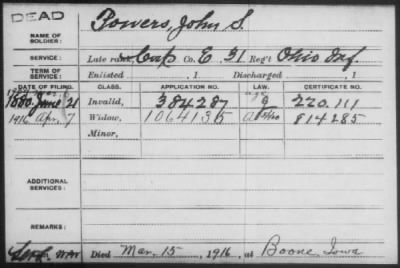 DEAD
NAME OF SOLDIER: Powers, John S.
SERVICE: Late rank Corp Co. E, 31 Reg't Ohio Inf.
TERM OF SERVICE: Enlisted , 1 Discharged , 1
DATE OF FILING. CLASS. APPLICATION NO. LAW. CERTIFICATE NO.
1880 June 21 Invalid, 384287 g 220.111
1916 Apr. 7 Widow, 1064135 814285
Minor,
ADDITIONAL SERVICES:
REMARKS:
Died Mar. 15, 1916, at Boone, Iowa